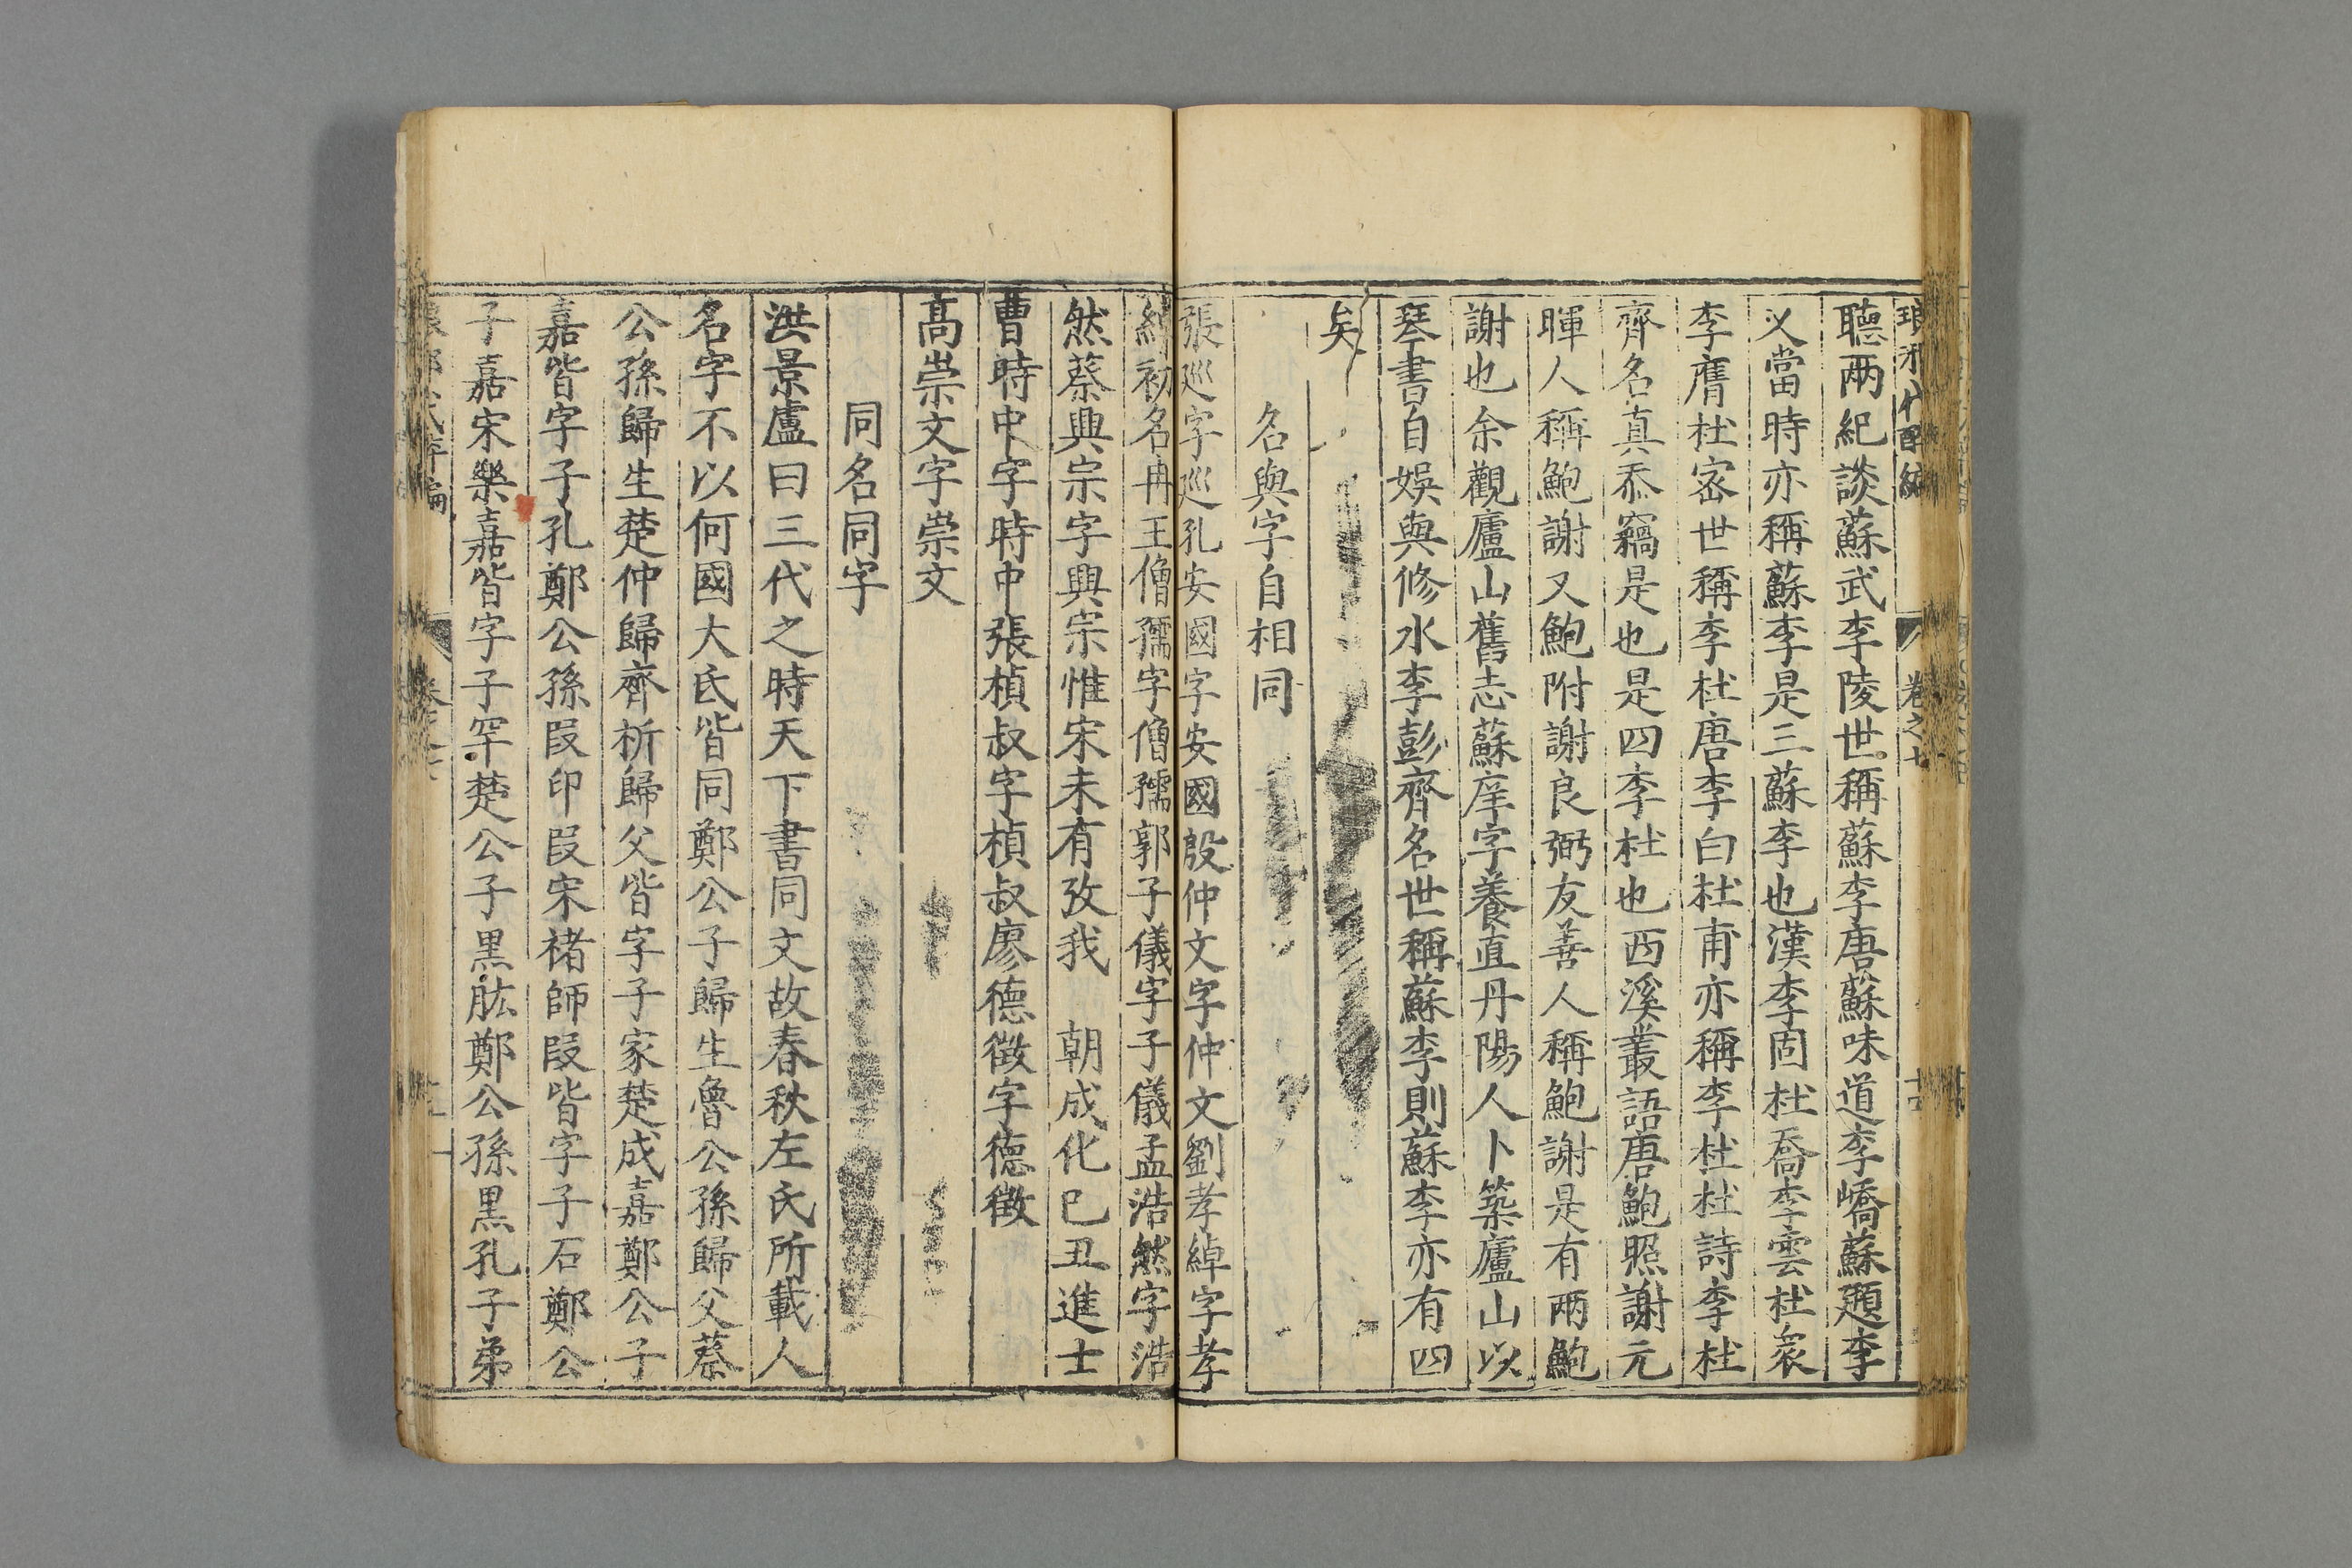 聽兩紀談蘇武李陵世稱蘇李唐蘇味道李嶠蘇頲李
乂當時亦稱蘇李是三蘇李也漢李固杜喬李雲杜衆
李膺杜宻世稱李杜唐李白杜甫亦稱李杜杜詩李杜
齊名真忝竊是也是四李杜也西溪叢語唐鮑照謝元
暉人稱鮑謝又鮑附謝良弼友善人稱鮑謝是有兩鮑
謝也余觀廬山舊志蘇庠字養直丹陽人卜築廬山以
琴書自娛與修水李彭齊名世稱蘇李則蘇李亦有四
矣
名與字自相同
張巡字巡孔安國字安國殷仲文字仲文劉孝綽字孝
綽初名冉王僧孺字僧孺郭子儀字子儀孟浩然字浩
然蔡興宗字興宗惟宋未有攷我 朝成化己丑進士
曹時中字時中張楨叔字楨叔廖德徵字德徵
高崇文字崇文
同名同字
洪景盧曰三代之時天下書同文故春秋左氏所載人
名字不以何國大氐皆同鄭公子歸生魯公孫歸父蔡
公孫歸生楚仲歸齊析歸父皆字子家楚成嘉鄭公子
嘉皆字子孔鄭公孫段印段宋褚師段皆字子石鄭公
子嘉宋樂嘉皆字子罕楚公子黒肱鄭公孫黒孔子弟
卷之七